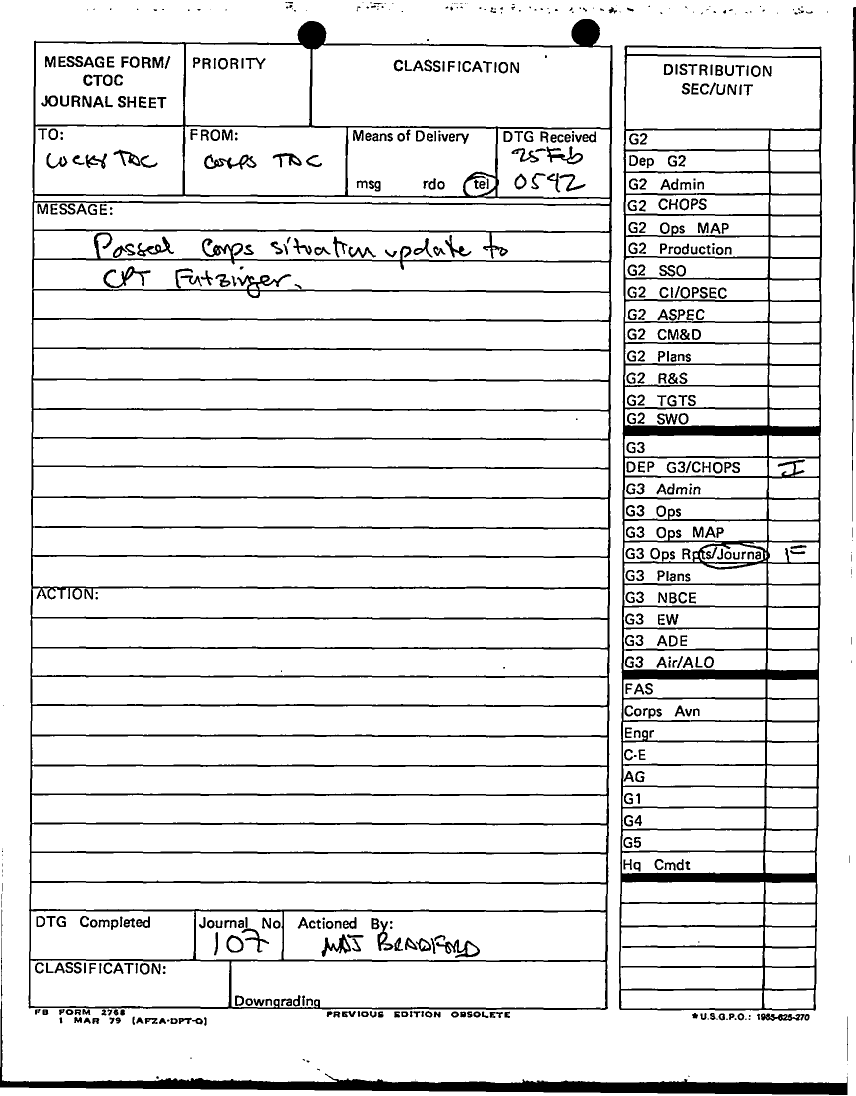 MESSAGE FORM/
CTOC
JOURNAL SHEET
PRIORITY
CLASSIFICATION
TO:
LUCKY TAC
FROM:
CORPS TAC
Means of Delivery
msg rdo tel
DTG Received
25 Feb
0542
MESSAGE:
Passed Corps situation update to
CPT Futzinger.
ACTION:
DTG Completed
Journal No.
107
Actioned By:
MAJ BRADFORD
CLASSIFICATION:
Downgrading
FB FORM 2768
1 MAR 79 (AFZA-DPT-O)
PREVIOUS EDITION OBSOLETE
DISTRIBUTION
SEC/UNIT
G2
Dep G2
G2 Admin
G2 CHOPS
G2 Ops MAP
G2 Production
G2 SSO
G2 CI/OPSEC
G2 ASPEC
G2 CM&D
G2 Plans
G2 R&S
G2 TGTS
G2 SWO
G3
DEP G3/CHOPS I
G3 Admin
G3 Ops
G3 Ops MAP
G3 Ops Rpts/Journal F
G3 Plans
G3 NBCE
G3 EW
G3 ADE
G3 Air/ALO
FAS
Corps Avn
Engr
C-E
AG
G1
G4
G5
Hq Cmdt
*U.S.G.P.O.: 1985-625-270